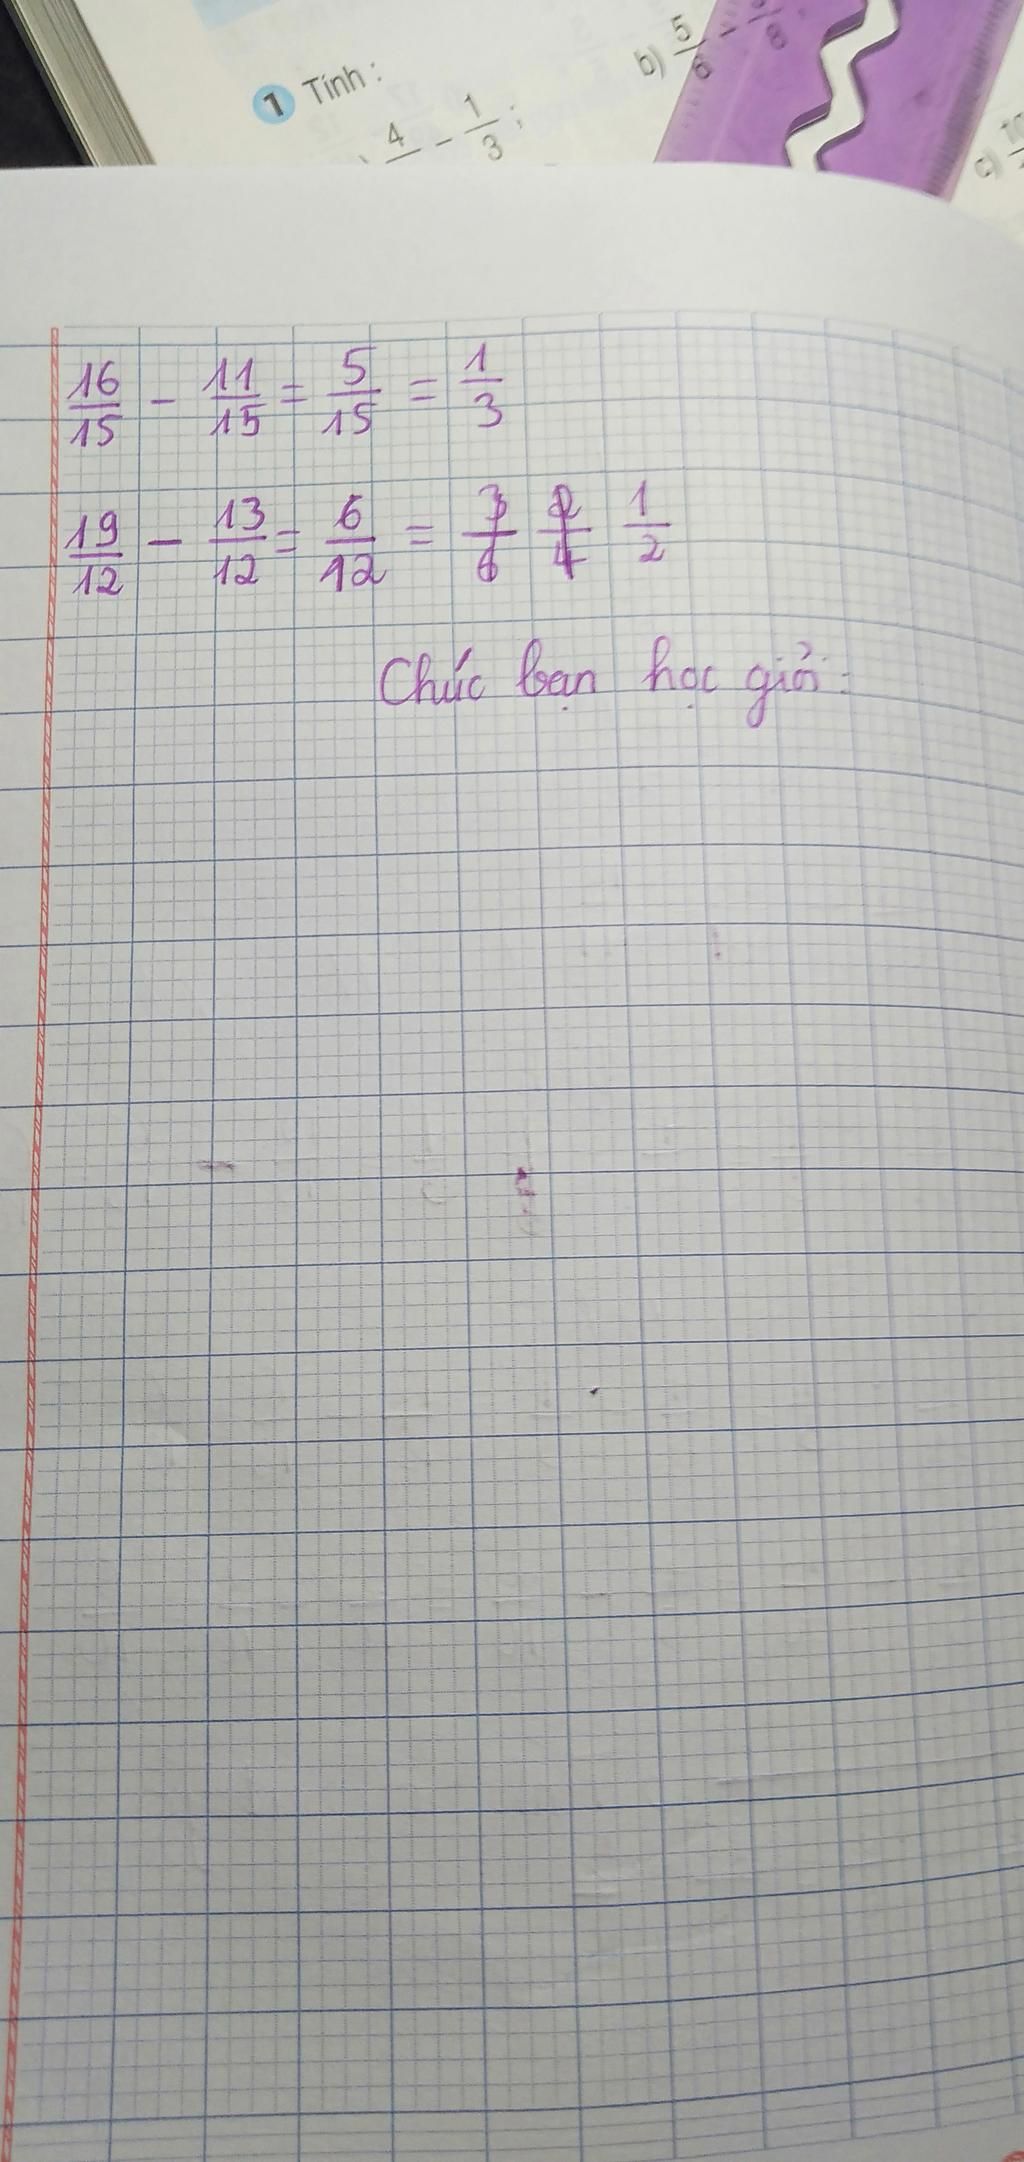 1 Tính :
4 - 1/3 ;
b) 5/6 - 3/8
c) 10
16/15 - 11/15 = 5/15 = 1/3
19/12 - 13/12 = 6/12 = 3/6 2/4 1/2
Chúc bạn học giỏi.